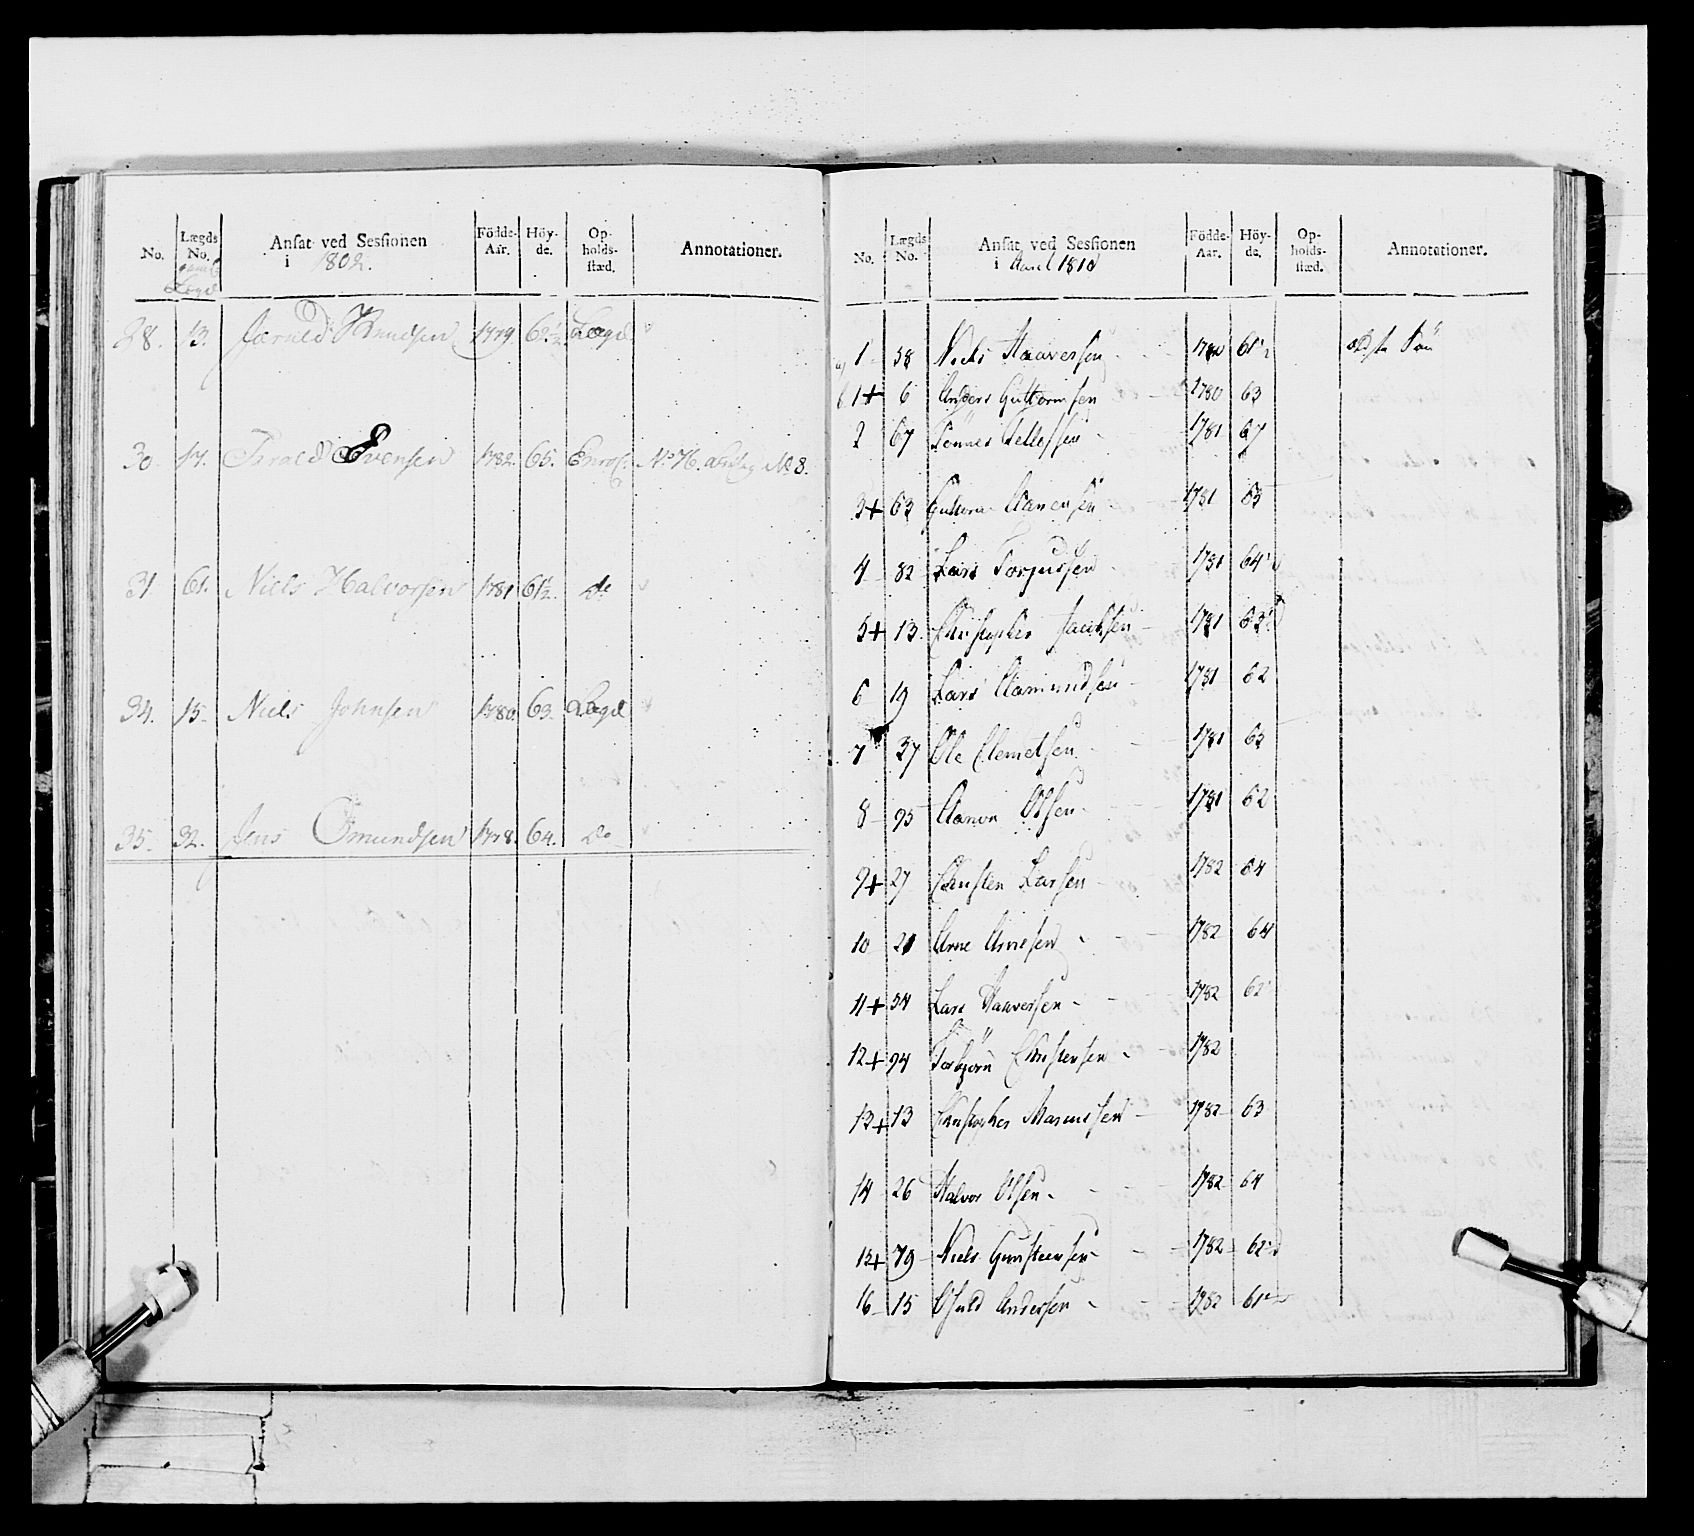 No. Lægds No. Ansat ved Sessionen i 1802. Födde-Aar. Höy-de. Op-holds-stæd. Annotationer.
gamle Lægd
28. 13. Jerald Knudsen 1779 62½ Lægd
30. 17. Tarald Evensen 1782. 65. Enrol. No 76. No 8.
31. 61. Niels Halvorsen 1781 61½ do
34. 15. Niels Johnsen 1780. 63. Lægd
35. 32. Jens Omundsen 1778. 64. Do
No. Lægds No. Ansat ved Sessionen i 1810 Födde-Aar. Höy-de. Op-holds-stæd. Annotationer.
a) 1 58 Niels Haaversen 1780 61½ ældste Sön
b 1+ 6 Anders Guttormsen 1780 63
2 67 Tönnes Tellefsen 1781 67
3+ 63 Guttorm Aanensen 1781 63
4 82 Lars Torjussen 1781 64½
5+ 13. Christopher Jacobsen 1781 63½
6 19 Lars Aamundsen 1781 62
7 37 Ole Clemetsen 1781 63
8 95 Aanon Olsen 1781 62
9+ 27 Christen Larsen 1782 64
10 21 Arne Arnesen 1782 64
11+ 54 Lars Haaversen 1782 62
12+ 94 Torbjörn Christensen 1782
13+ 13 Christopher Marcussen 1782 63
14 26 Halvor Olsen 1782 64
15+ 79 Niels Gunsteensen 1782 62½
16 15 Osuld Andersen 1782 61½